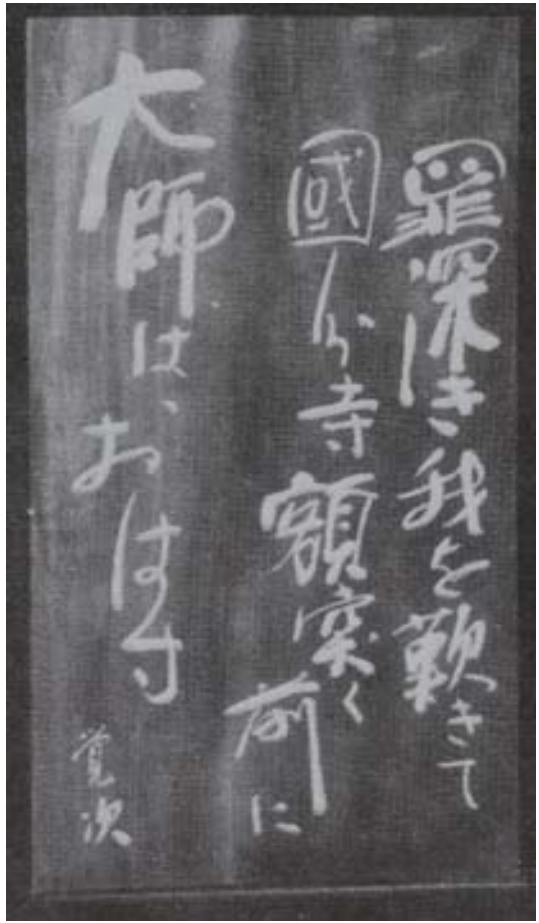 罪深き我を歎きて
國分寺額突く前に
大師は、おはす
覚次